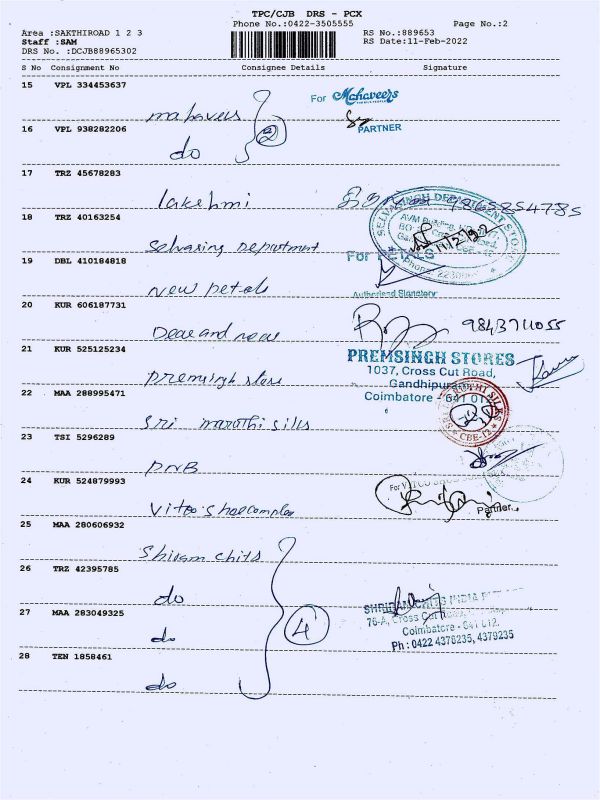 TPC/CJB DRS - PCX
Phone No.:0422-3505555 Page No.:2
Area :SAKTHIROAD 1 2 3 RS No.:889653
Staff :SAM RS Date:11-Feb-2022
DRS No. :DCJB88965302
S No Consignment No Consignee Details Signature
15 VPL 334453637
mahavers For Mahaveers
PARTNER
16 VPL 938282206 2
do
17 TRZ 45678283
lakshmi
18 TRZ 40163254
Selvasing Department SELVASINGH DEPARTMENT STORE
AVM Building
Phone:
19 DBL 410184818 For PETALS
New petals Authorised Signatory
20 KUR 606187731
Dear and near 9843711055
21 KUR 525125234 PREMSINGH STORES
1037, Cross Cut Road,
premsingh store Gandhipuram
22 MAA 288995471 Coimbatore - 641 012
Sri maruthi silks MARUTHI SILKS
CBE-12
23 TSI 5296289
PNB
24 KUR 524879993
Vitoo Shoe complex Partner.
25 MAA 280606932
Shiram chits
26 TRZ 42395785
do SHRIRAM CHITS INDIA
76-A, Cross Cut Road,
27 MAA 283049325 4 Coimbatore - 641 012.
do Ph : 0422 4376235, 4379235
28 TEN 1858461
do